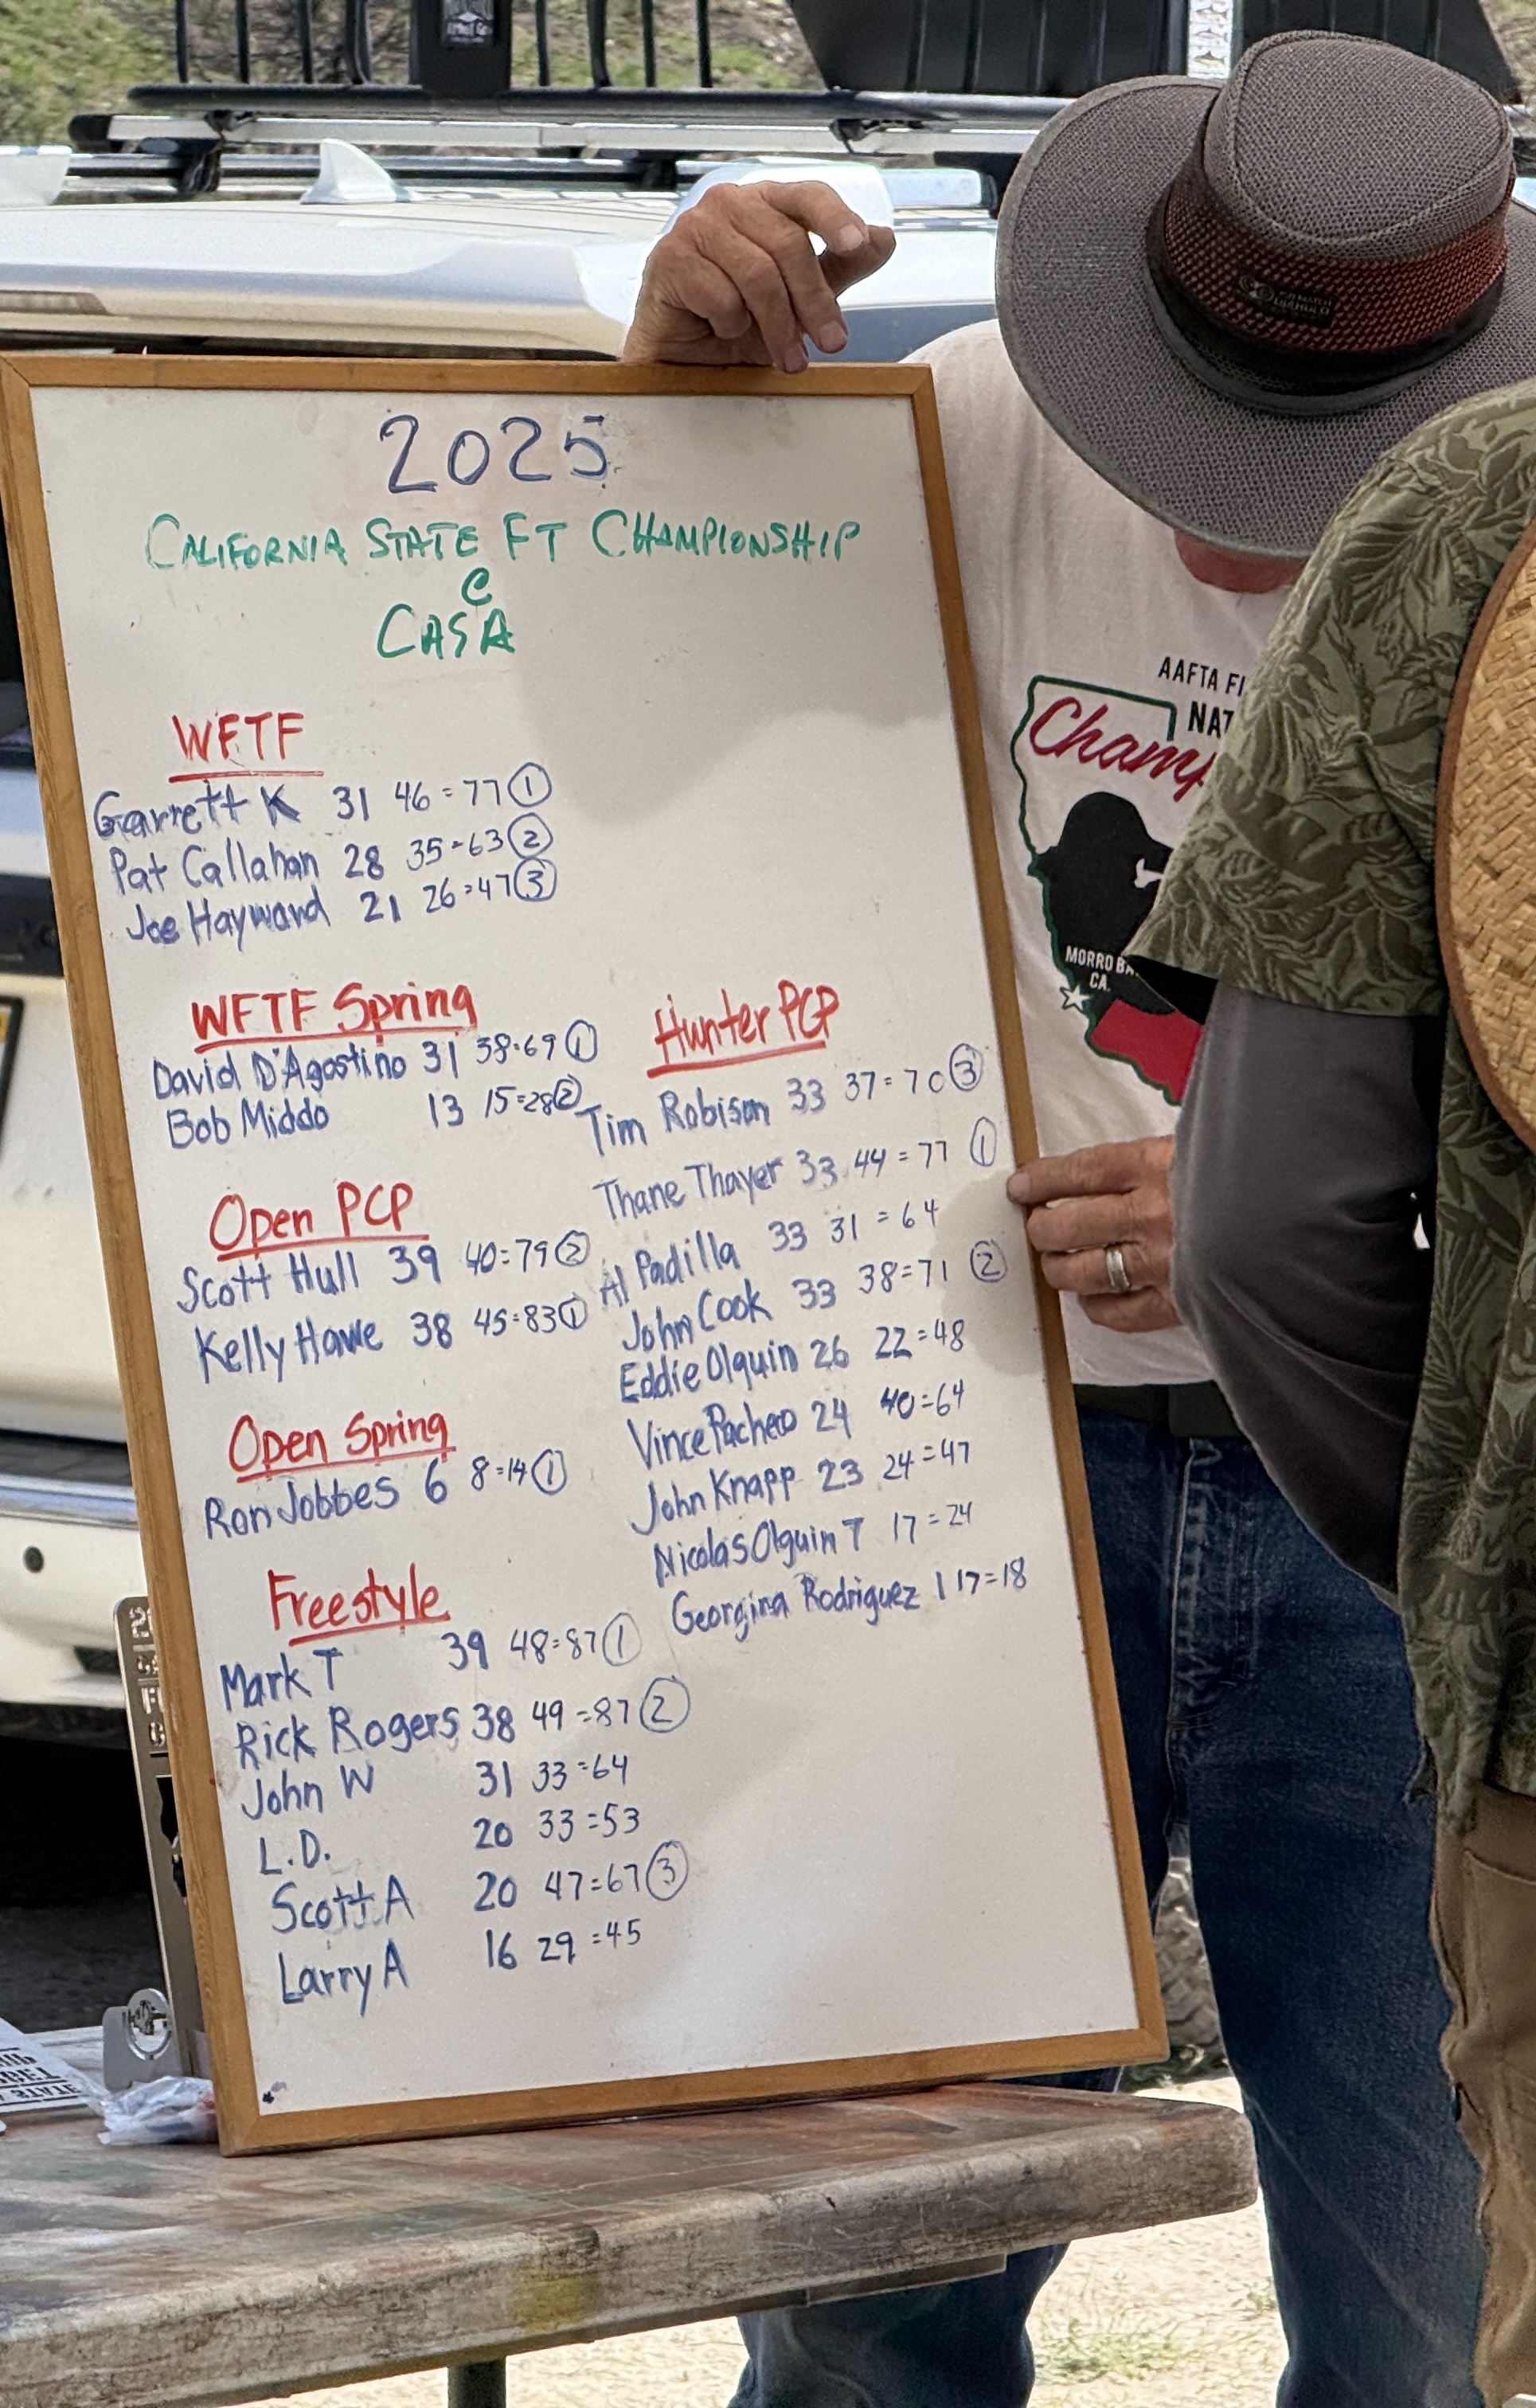 2025
CALIFORNIA STATE FT CHAMPIONSHIP
@
CASA
WFTF
Garrett K 31 46=77 ①
Pat Callahan 28 35=63 ②
Joe Hayward 21 26=47 ③
WFTF Spring
David D'Agostino 31 38=69 ①
Bob Middo 13 15=28 ②
Open PCP
Scott Hull 39 40=79 ②
Kelly Hawe 38 45=83 ①
Open Spring
Ron Jobbes 6 8=14 ①
Freestyle
Mark T 39 48=87 ①
Rick Rogers 38 49=87 ②
John W 31 33=64
L.D. 20 33=53
Scott A 20 47=67 ③
Larry A 16 29=45
Hunter PCP
Tim Robison 33 37=70 ③
Thane Thayer 33 44=77 ①
Al Padilla 33 31=64
John Cook 33 38=71 ②
Eddie Olquin 26 22=48
Vince Pacheco 24 40=64
John Knapp 23 24=47
Nicolas Olguin 7 17=24
Georgina Rodriguez 1 17=18
AAFTA FI
NAT
Champ
MORRO BA
CA.